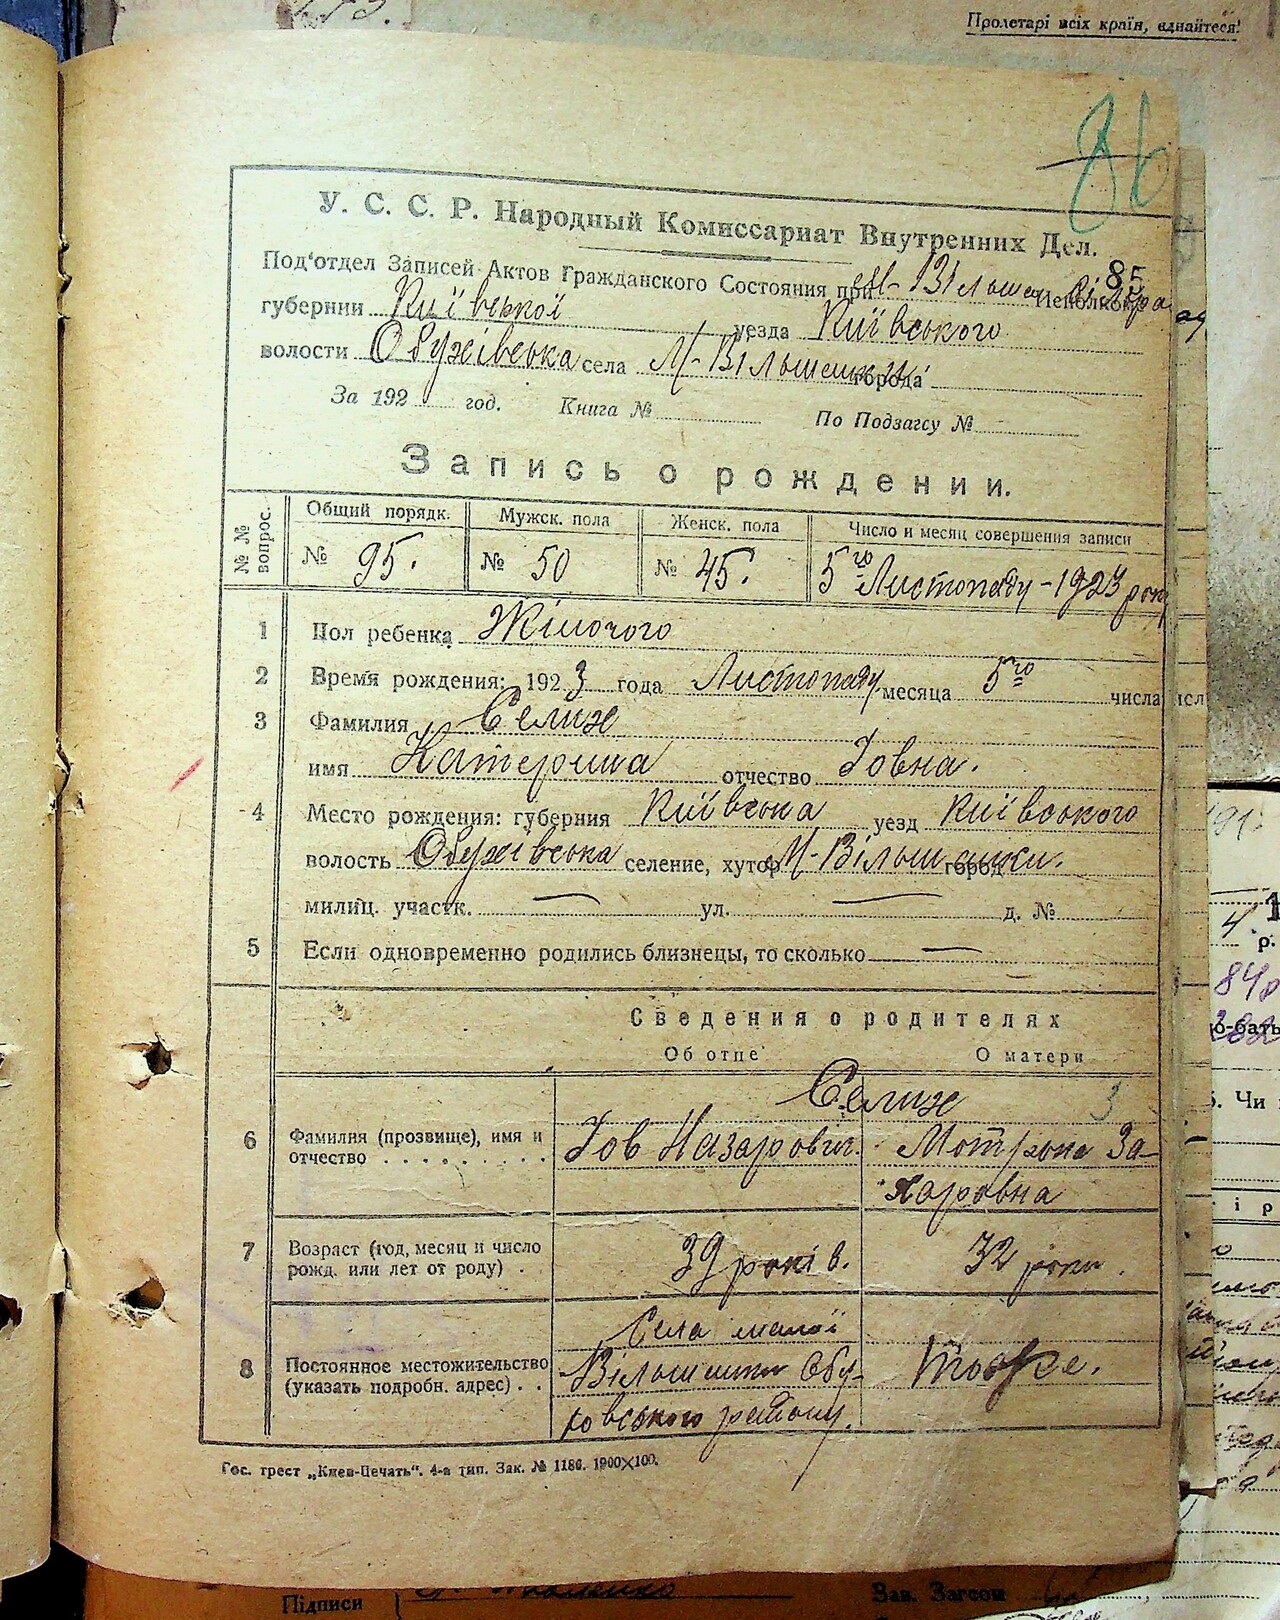 Пролетарі всіх країн, єднайтеся!
86
У. С. С. Р. Народный Комиссариат Внутренних Дел.
85
Под'отдел Записей Актов Гражданского Состояния при М-Вільшан Исполкоме
губернии Київської уезда Київського
волости Обухівська села М-Вільшанки города
За 192 год. Книга № По Подзагсу №
Запись о рождении.
№№ вопрос.
Общий порядк. Мужск. пола Женск. пола Число и месяц совершения записи
№ 95. № 50 № 45. 5го Листопаду - 1923 року
1 Пол ребенка Жіночого
2 Время рождения: 1923 года Листопаду месяца 5го числа
3 Фамилия Селиж
имя Катерина отчество Іовна.
4 Место рождения: губерния Київська уезд Київського
волость Обухівська селение, хутор М-Вільшанки. город
милиц. участк. — ул. — д. №
5 Если одновременно родились близнецы, то сколько —
Сведения о родителях
Об отце О матери
Селиж
6 Фамилия (прозвище), имя и отчество . . . . . . . . . Іов Назарович. Мотрона Захаровна
7 Возраст (год, месяц и число рожд. или лет от роду) . 39 років. 32 роки.
8 Постоянное местожительство (указать подробн. адрес) . . Села малої Вільшанки Обуховського району. Тоже.
Гос. трест „Киев-Печать". 4-а тип. Зак. № 1186. 1900×100.
Підписи
Зав. Загсом